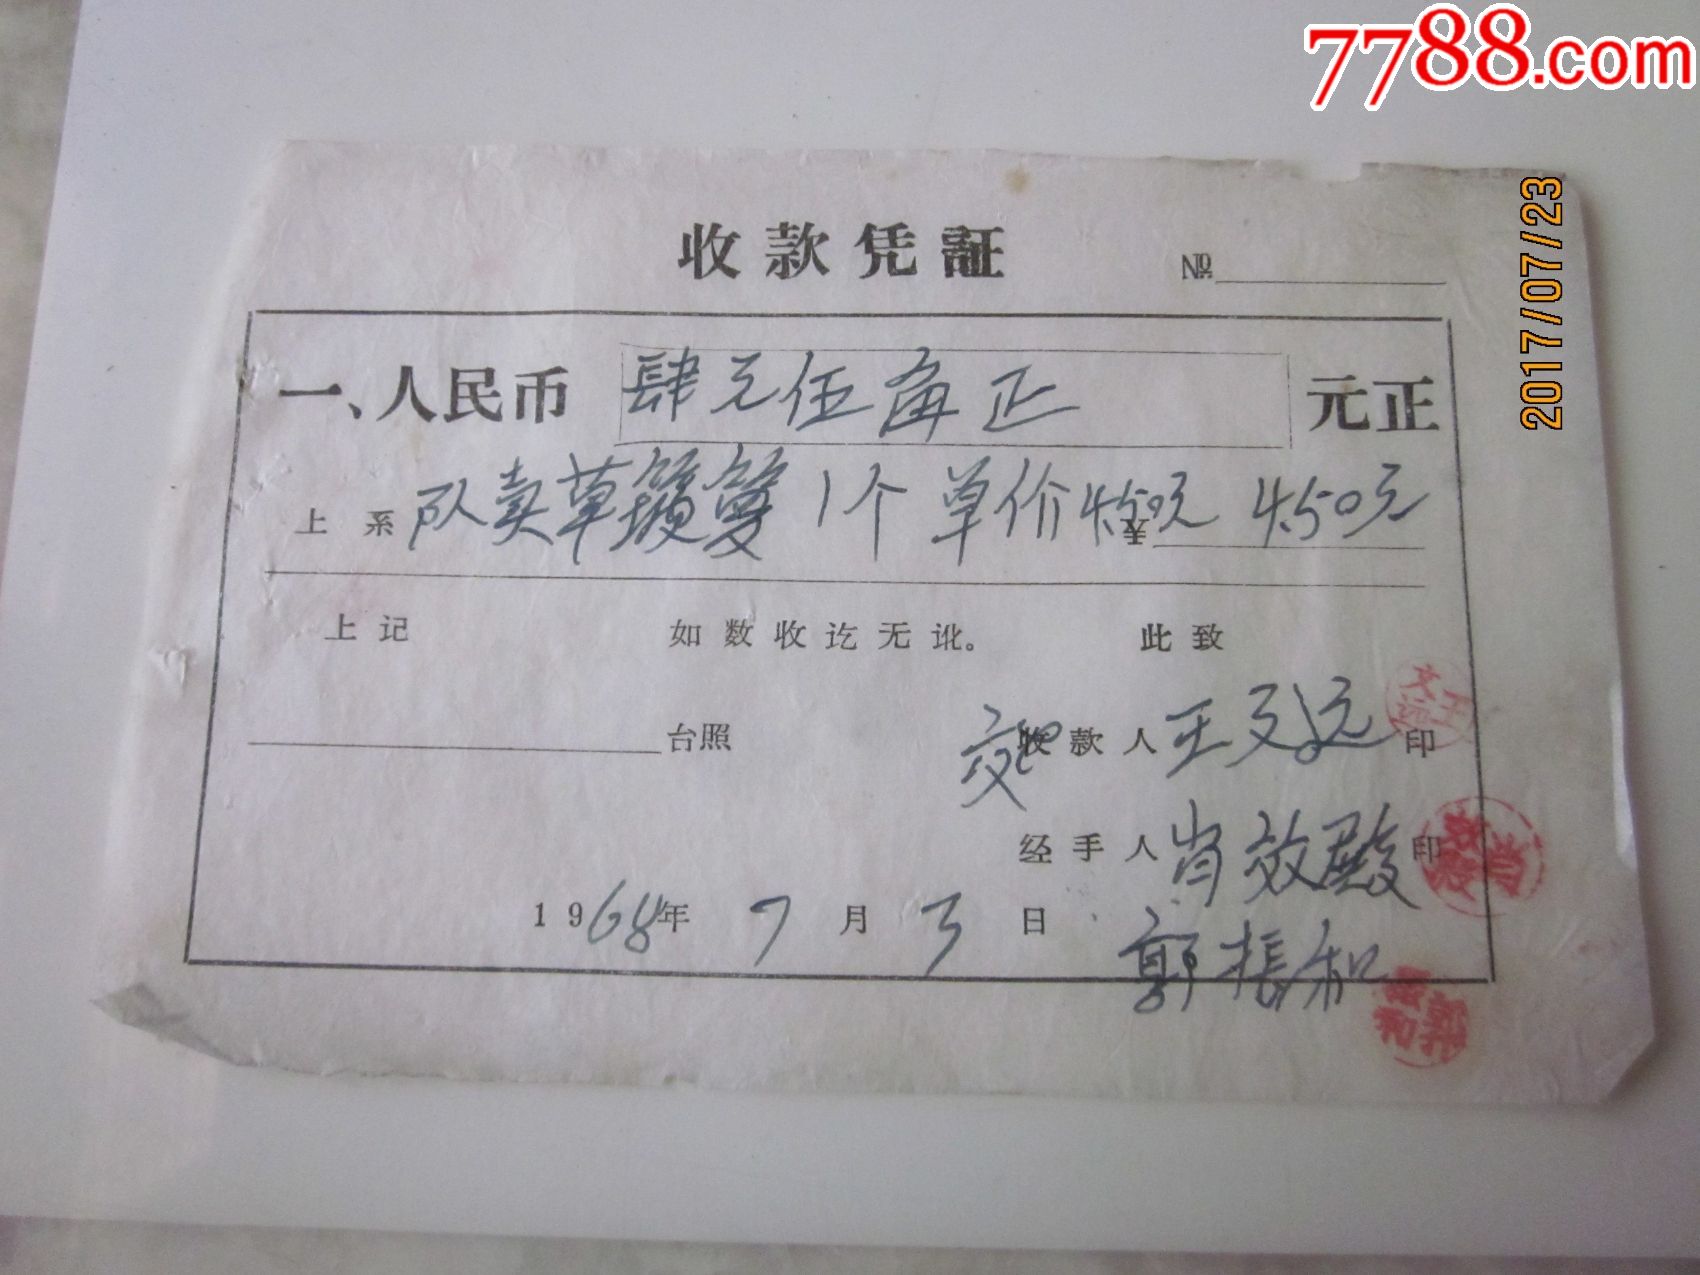 7788.com
2017/07/23
收款凭証
№
一、人民币 肆元伍角正 元正
上系 队卖草 1个 单价4.50元 4.50元
上记 如数收讫无讹。 此致
台照 交 收款人 王文远 印
王文远
经手人 肖效殿 印
肖效殿
1968年 7月 3日
郭振和
郭振和